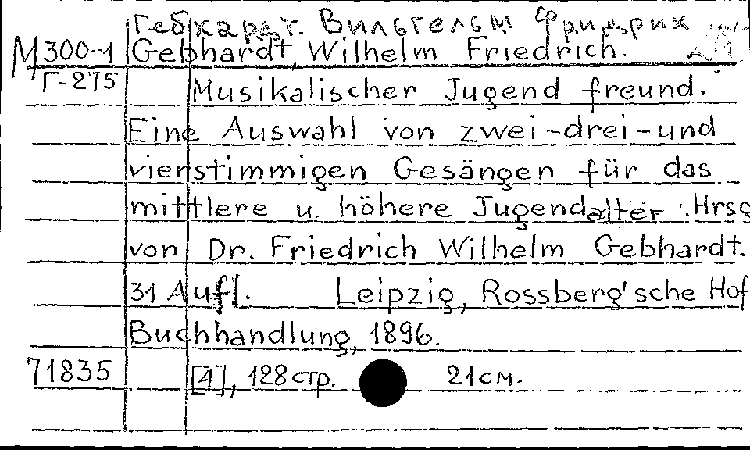 Гебхардт. Вильгельм Фридрих
М 300-1 Gebhardt, Wilhelm Friedrich.
Г-275 Musikalischer Jugend freund.
Eine Auswahl von zwei-drei-und
vierstimmigen Gesängen für das
mittlere u. höhere Jugendalter. Hrsg
von Dr. Friedrich Wilhelm Gebhardt.
31 Aufl. Leipzig, Rossberg'sche Hof
Buchhandlung, 1896.
71835 [4], 128 стр. 21 см.